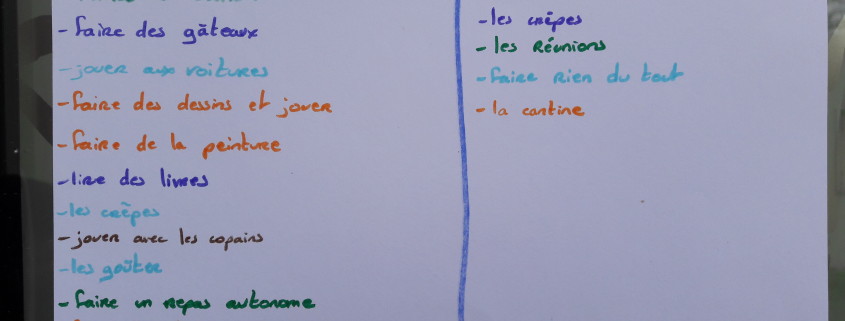 - faire des gâteaux
- jouer aux voitures
- faire des dessins et jouer
- faire de la peinture
- lire des livres
- les crêpes
- jouer avec les copains
- les goûter
- faire un repas autonome
- les crêpes
- les Réunions
- faire rien du tout
- la cantine